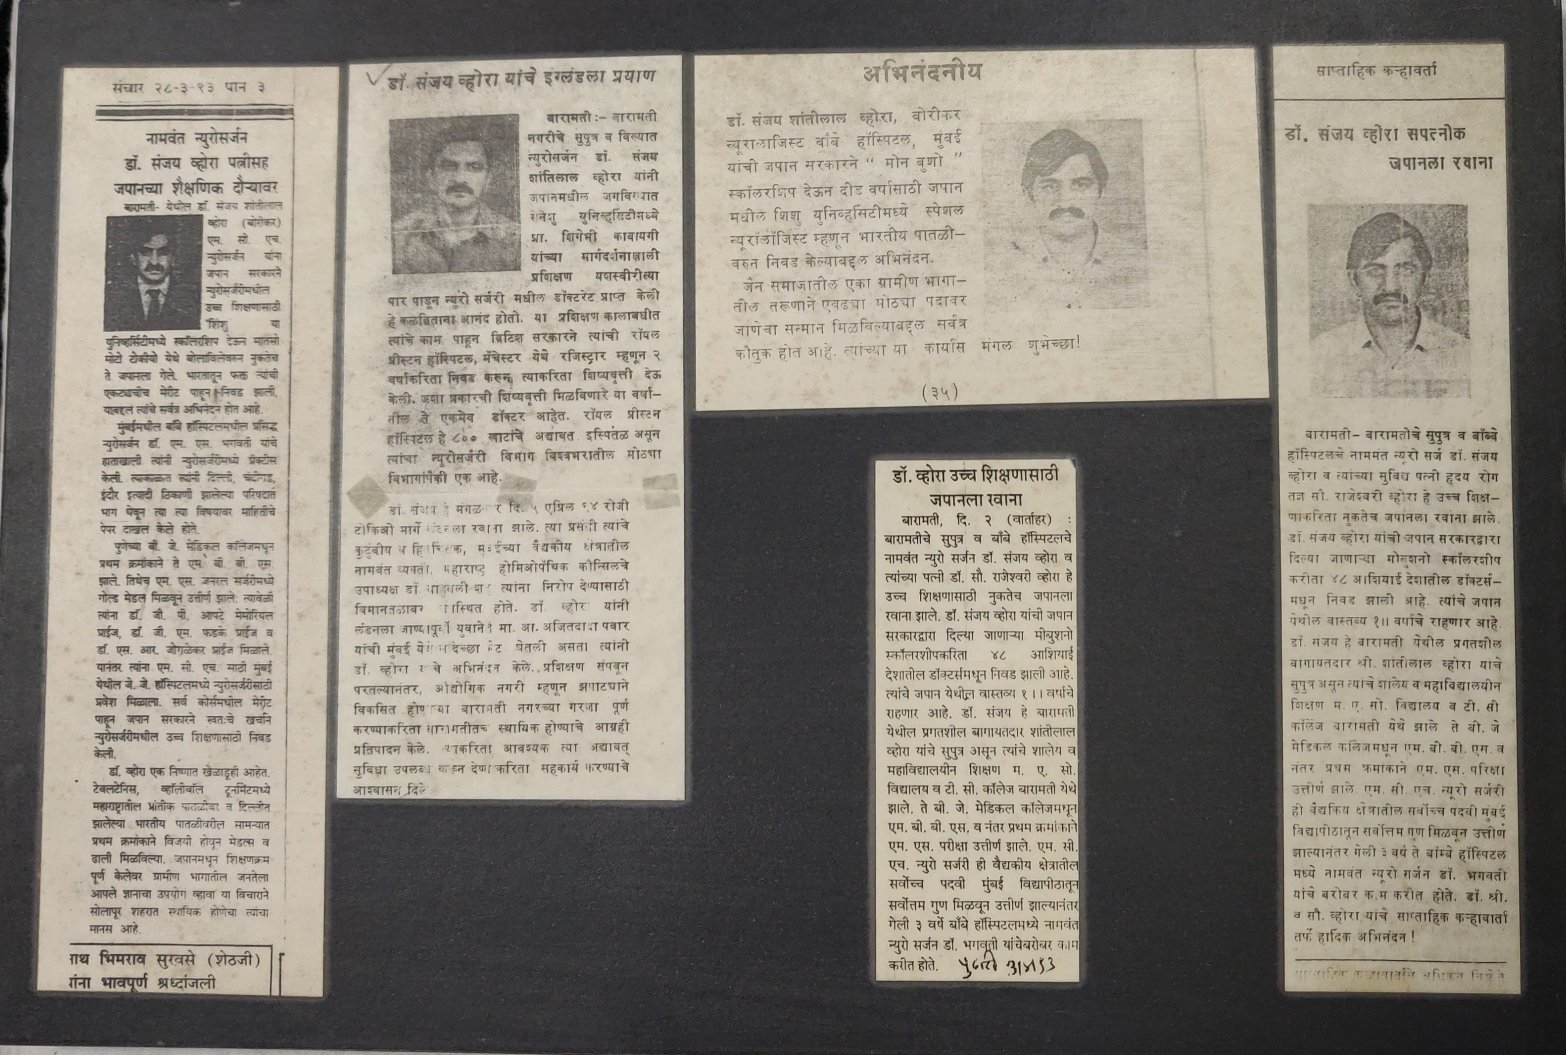 संचार २८-३-९३ पान ३
नामवंत न्युरोसर्जन
डॉ. संजय व्होरा पत्नीसह
जपानच्या शैक्षणिक दौऱ्यावर
बारामती- येथील डॉ. संजय शांतीलाल
व्होरा (बोरीकर)
एम. सी. एच.
न्युरोसर्जन यांना
जपान सरकारने
न्युरोसर्जरीमधील
उच्च शिक्षणासाठी
'शिशु' या
युनिव्हर्सिटीमध्ये स्कॉलरशिप देऊन मातसो
मोटो टोकीयो येथे बोलाविलेवरुन नुकतेच
ते जपानला गेले. भारतातून फक्त त्यांची
एकट्याचीच मेरीट पाहून निवड झाली,
याबद्दल त्यांचे सर्वत्र अभिनंदन होत आहे.
मुंबईमधील बॉंबे हॉस्पिटलमधील प्रसिद्ध
न्युरोसर्जन डॉ. एम. एस. भगवती यांचे
हाताखाली त्यांनी न्युरोसर्जरीमध्ये प्रॅक्टीस
केली. त्याकाळत त्यांनी दिल्ली, चंदीगड,
इंदौर इत्यादी ठिकाणी झालेल्या परिषदांत
भाग घेवून त्या त्या विषयावर माहितीचे
पेपर दाखल केले होते.
पुणेच्या बी. जे. मेडिकल कॉलेजमधून
प्रथम क्रमांकाने ते एम. बी. बी. एस.
झाले. तिथेच एम. एस. जनरल सर्जरीमध्ये
गोल्ड मेडल मिळवून उत्तीर्ण झाले. त्यावेळी
त्यांना डॉ. जी. पी. आपटे मेमोरियल
प्राईज, डॉ. जी. एम. फडके प्राईज व
डॉ. एस. आर. जोगळेकर प्राईज मिळाले.
यानंतर त्यांना एम. सी. एच. साठी मुंबई
येथील जे. जे. हॉस्पिटलमध्ये न्युरोसर्जरीसाठी
प्रवेश मिळाला. सर्व कोर्समधील मेरीट
पाहून जपान सरकारने स्वतःचे खर्चाने
न्युरोसर्जरीमधील उच्च शिक्षणासाठी निवड
केली.
डॉ. व्होरा एक निष्णात खेळाडूही आहेत.
टेबलटेनिस, व्हॉलीबॉल टूर्नामेंटमध्ये
महाराष्ट्रातील प्रांतीक पातळीवर व दिल्लीत
झालेल्या भारतीय पातळीवरील सामन्यात
प्रथम क्रमांकाने विजयी होवून मेडल्स व
ढाली मिळविल्या. जपानमधून शिक्षणक्रम
पूर्ण केलेवर ग्रामीण भागातील जनतेला
आपले ज्ञानाचा उपयोग व्हावा या विचाराने
सोलापूर शहरात स्थायिक होणेचा त्यांचा
मानस आहे.
नाथ भिमराव सुरवसे (शेठजी)
यांना भावपूर्ण श्रध्दांजली
डॉ. संजय व्होरा यांचे इंग्लंडला प्रयाण
बारामती:- बारामती
नगरीचे सुपुत्र व विख्यात
न्युरोसर्जन डॉ. संजय
शांतिलाल व्होरा यांनी
जपानमधील जगविख्यात
युनिव्हर्सिटीमध्ये
प्रा. शिगेची काबायगी
यांच्या मार्गदर्शनाखाली
प्रशिक्षण यशस्वीरीत्या
पार पाडून न्यूरो सर्जरी मधील डॉक्टरेट प्राप्त केली
हे कळविताना आनंद होतो. या प्रशिक्षण कालावधीत
त्यांचे काम पाहून ब्रिटिश सरकारने त्यांची रॉयल
प्रीस्टन हॉस्पिटल, मँचेस्टर येथे रजिस्ट्रार म्हणून २
वर्षाकरिता निवड करुन त्याकरिता शिष्यवृत्ती देऊ
केली. अशा प्रकारची शिष्यवृत्ती मिळविणारे या वर्षा-
तील ते एकमेव डॉक्टर आहेत. रॉयल प्रीस्टन
हॉस्पिटल हे ८०० खाटांचे अद्यावत इस्पितळ असून
त्यांचा न्युरोसर्जरी विभाग विश्वभरातील मोठ्या
विभागांपैकी एक आहे.
डॉ. संजय हे मंगळवार दि. ५ एप्रिल ९४ रोजी
टोकिओ मार्गे रवाना झाले. त्या प्रसंगी त्यांचे
कुटुंबीय व हितचिंतक, मुंबईच्या वैद्यकीय क्षेत्रातील
नामवंत व्यक्ती, महाराष्ट्र होमिओपॅथिक कौन्सिलचे
उपाध्यक्ष डॉ त्यांना निरोप देण्यासाठी
विमानतळावर उपस्थित होते. डॉ. व्होरा यांनी
लंडनला जाण्यापूर्वी युवानेते मा. आ. अजितदादा पवार
यांची मुंबई येथे सदिच्छा भेट घेतली असता त्यांनी
डॉ. व्होरा यांचे अभिनंदन केले. प्रशिक्षण संपवून
परतल्यानंतर, औद्योगिक नगरी म्हणून झपाट्याने
विकसित होणाऱ्या बारामती नगरच्या गरजा पूर्ण
करण्याकरिता बारामतीतच स्थायिक होण्याचे आग्रही
प्रतिपादन केले. त्याकरिता आवश्यक त्या अद्यावत्
सुविधा उपलब्ध करुन देण्याकरिता सहकार्य करण्याचे
आश्वासन दिले
अभिनंदनीय
डॉ. संजय शांतीलाल व्होरा, बोरीकर
न्यूरालाजिस्ट बॉंबे हॉस्पिटल, मुंबई
यांची जपान सरकारने “ मोन बुशो ”
स्कॉलरशिप देऊन दीड वर्षासाठी जपान
मधील शिशु युनिव्हर्सिटीमध्ये स्पेशल
न्यूरॉलॉजिस्ट म्हणून भारतीय पातळी-
वरुन निवड केल्याबद्दल अभिनंदन.
जैन समाजातील एका ग्रामीण भागा-
तील तरूणाने एवढ्या मोठ्या पदावर
जाणेचा सन्मान मिळविल्याबद्दल सर्वत्र
कौतुक होत आहे. त्यांच्या या कार्यास मंगल शुभेच्छा!
(३५)
डॉ. व्होरा उच्च शिक्षणासाठी
जपानला रवाना
बारामती, दि. २ (वार्ताहर) :
बारामतीचे सुपुत्र व बॉंबे हॉस्पिटलचे
नामवंत न्युरो सर्जन डॉ. संजय व्होरा व
त्यांच्या पत्नी डॉ. सौ. राजेश्वरी व्होरा हे
उच्च शिक्षणासाठी नुकतेच जपानला
रवाना झाले. डॉ. संजय व्होरा यांची जपान
सरकारद्वारा दिल्या जाणाऱ्या मोंबुशनो
स्कॉलरशीपकरिता ४८ आशियाई
देशातील डॉक्टर्समधून निवड झाली आहे.
त्यांचे जपान येथील वास्तव्य १।। वर्षाचे
राहणार आहे. डॉ. संजय हे बारामती
येथील प्रगतशील बागायतदार शांतीलाल
व्होरा यांचे सुपुत्र असून त्यांचे शालेय व
महाविद्यालयीन शिक्षण म. ए. सो.
विद्यालय व टी. सी. कॉलेज बारामती येथे
झाले. ते बी. जे. मेडिकल कॉलेजमधून
एम. बी. बी. एस. व नंतर प्रथम क्रमांकाने
एम. एस. परीक्षा उत्तीर्ण झाले. एम. सी.
एच. न्युरो सर्जरी ही वैद्यकीय क्षेत्रातील
सर्वोच्च पदवी मुंबई विद्यापीठातून
सर्वोत्तम गुण मिळवून उत्तीर्ण झाल्यानंतर
गेली ३ वर्षे बॉंबे हॉस्पिटलमध्ये नामवंत
न्युरो सर्जन डॉ. भगवती यांचेबरोबर काम
करीत होते.
साप्ताहिक कऱ्हावार्ता
डॉ. संजय व्होरा सपत्नीक
जपानला रवाना
बारामती- बारामतीचे सुपुत्र व बॉंबे
हॉस्पिटलचे नाममंत न्युरो सर्ज डॉ. संजय
व्होरा व त्यांच्या सुविद्य पत्नी हृदय रोग
तज्ञ सौ. राजेश्वरी व्होरा हे उच्च शिक्ष-
णाकरिता नुकतेच जपानला रवाना झाले.
डॉ. संजय व्होरा यांची जपान सरकारद्वारा
दिल्या जाणाऱ्या मोंबुशनो स्कॉलरशीप
करीता ४८ आशियाई देशातील डॉक्टर्स-
मधून निवड झाली आहे. त्यांचे जपान
येथील वास्तव्य १।। वर्षाचे राहणार आहे.
डॉ. संजय हे बारामती येथील प्रगतशील
बागायतदार श्री. शांतीलाल व्होरा यांचे
सुपुत्र असून त्यांचे शालेय व महाविद्यालयीन
शिक्षण म. ए. सो. विद्यालय व टी. सी
कॉलेज बारामती येथे झाले ते बी. जे
मेडिकल कॉलेजमधून एम. बी. बी. एम. व
नंतर प्रथम क्रमांकाने एम. एस. परिक्षा
उत्तीर्ण झाले. एम. सी. एच. न्यूरो सर्जरी
ही वैद्यकिय क्षेत्रातील सर्वोच्च पदवी मुंबई
विद्यापीठातून सर्वोत्तम गूण मिळवून उत्तीर्ण
झाल्यानंतर गेली ३ वर्ष ते बॉम्बे हॉस्पिटल
मध्ये नामवंत न्यूरो सर्जन डॉ. भगवती
यांचे बरोबर काम करीत होते. डॉ. श्री.
व सौ. व्होरा यांचे साप्ताहिक कऱ्हावार्ता
तर्फे हार्दिक अभिनंदन !